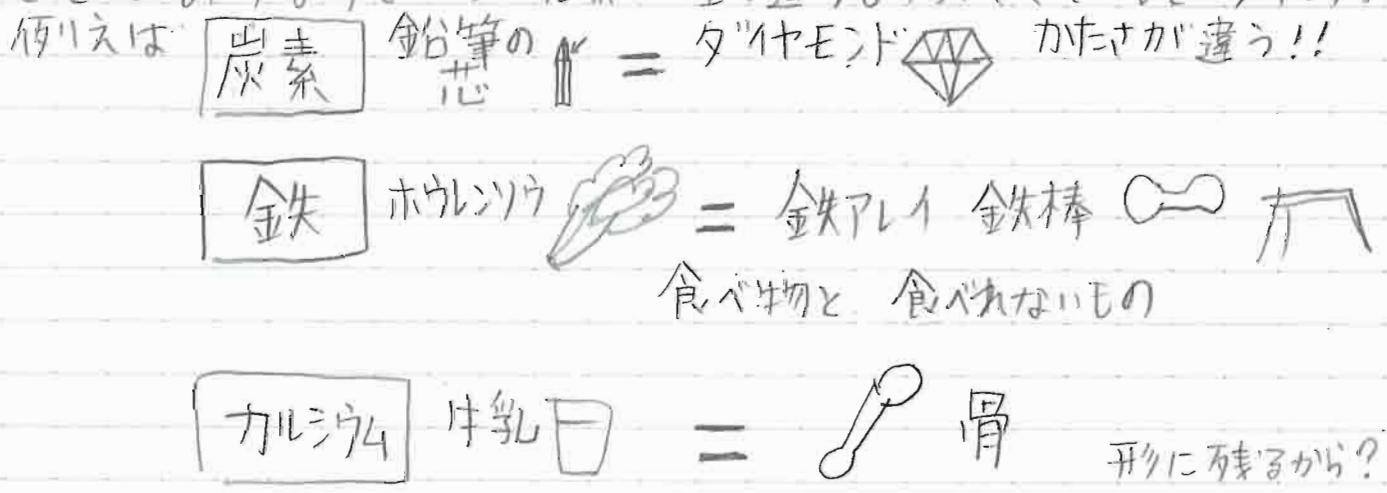 例えば 炭素 鉛筆の芯 = ダイヤモンド かたさが違う!!
鉄 ホウレンソウ = 鉄アレイ 鉄棒
食べ物と 食べれないもの
カルシウム 牛乳 = 骨 形に残るから?